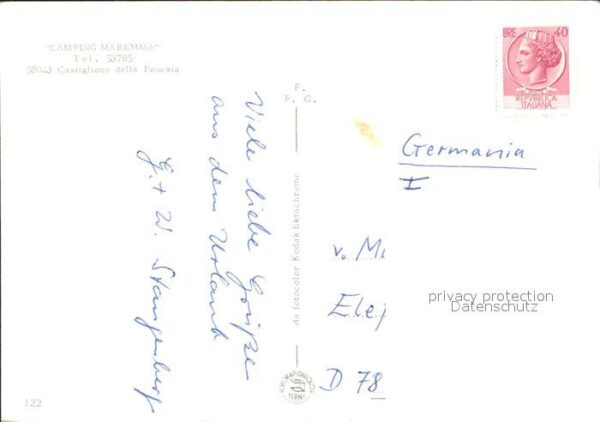 "CAMPING MAREMMA"
Tel. 53765
58043 Castiglione della Pescaia
Viele liebe Grüße
aus dem Urlaub
G. + W. Stangenberg
F.
F. G.
da fotocolor Kodak Ektachrome
LIRE 40
POSTE
REPVBBLICA
ITALIANA
Germania
I
v. M
Ele
D 78
privacy protection
Datenschutz
122